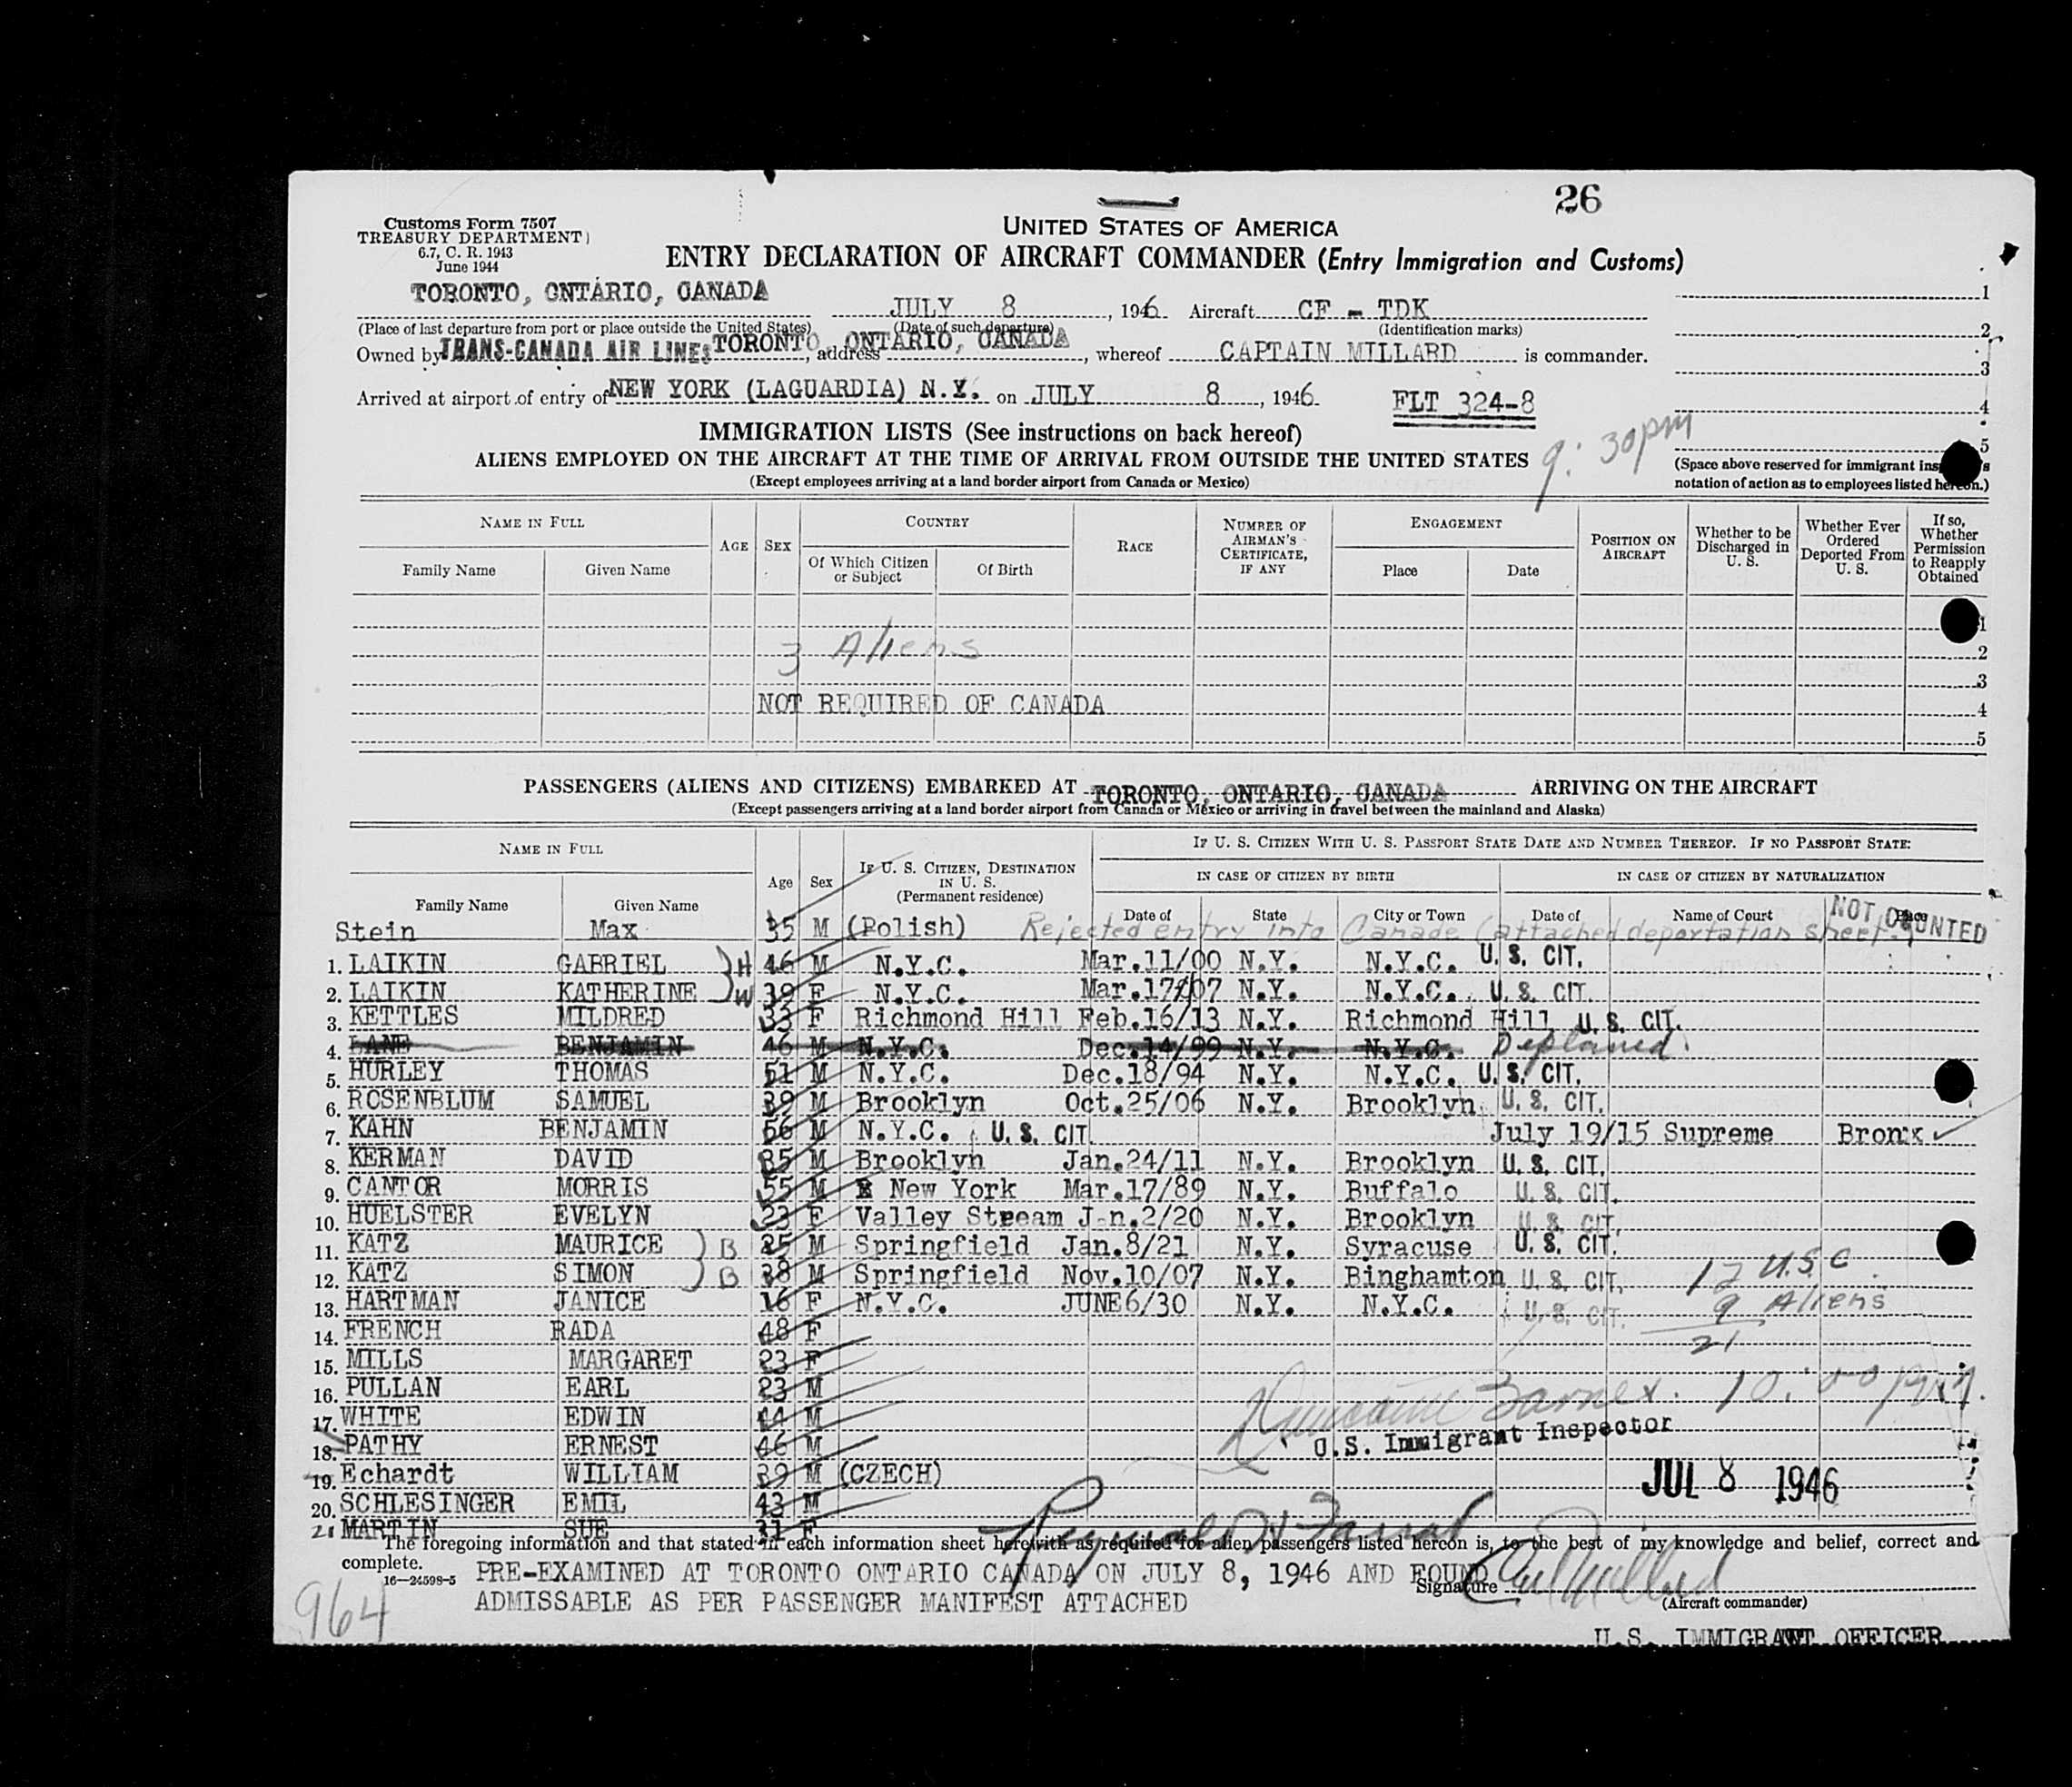 26
Customs Form 7507
TREASURY DEPARTMENT
6.7, C. R. 1943
June 1944
UNITED STATES OF AMERICA
ENTRY DECLARATION OF AIRCRAFT COMMANDER (Entry Immigration and Customs)
TORONTO, ONTARIO, CANADA JULY 8, 1946 Aircraft CF - TDK 1
(Place of last departure from port or place outside the United States) (Date of such departure) (Identification marks) 2
Owned by TRANS-CANADA AIR LINES, address TORONTO, ONTARIO, CANADA, whereof CAPTAIN MILLARD is commander. 3
Arrived at airport of entry of NEW YORK (LAGUARDIA) N.Y. on JULY 8, 1946 FLT 324-8 4
9:30pm 5
IMMIGRATION LISTS (See instructions on back hereof)
ALIENS EMPLOYED ON THE AIRCRAFT AT THE TIME OF ARRIVAL FROM OUTSIDE THE UNITED STATES
(Except employees arriving at a land border airport from Canada or Mexico)
(Space above reserved for immigrant
notation of action as to employees listed hereon.)
NAME IN FULL AGE SEX COUNTRY RACE NUMBER OF AIRMAN'S CERTIFICATE, IF ANY ENGAGEMENT POSITION ON AIRCRAFT Whether to be Discharged in U. S. Whether Ever Ordered Deported From U. S. If so, Whether Permission to Reapply Obtained
Family Name Given Name Of Which Citizen or Subject Of Birth Place Date
1
3 Aliens 2
3
NOT REQUIRED OF CANADA 4
5
PASSENGERS (ALIENS AND CITIZENS) EMBARKED AT TORONTO, ONTARIO, CANADA ARRIVING ON THE AIRCRAFT
(Except passengers arriving at a land border airport from Canada or Mexico or arriving in travel between the mainland and Alaska)
NAME IN FULL Age Sex IF U. S. CITIZEN, DESTINATION IN U. S. (Permanent residence) IF U. S. CITIZEN WITH U. S. PASSPORT STATE DATE AND NUMBER THEREOF. IF NO PASSPORT STATE:
IN CASE OF CITIZEN BY BIRTH IN CASE OF CITIZEN BY NATURALIZATION
Family Name Given Name Date of State City or Town Date of Name of Court Place
Stein Max 35 M (Polish) Rejected entry into Canada (attached deportation sheet.) NOT COUNTED
1. LAIKIN GABRIEL H 46 M N.Y.C. Mar.11/00 N.Y. N.Y.C. U.S. CIT.
2. LAIKIN KATHERINE W 39 F N.Y.C. Mar.17/07 N.Y. N.Y.C. U.S. CIT.
3. KETTLES MILDRED 33 F Richmond Hill Feb.16/13 N.Y. Richmond Hill U.S. CIT.
4. LANE BENJAMIN 46 M N.Y.C. Dec.14/99 N.Y. N.Y.C. Deplaned.
5. HURLEY THOMAS 51 M N.Y.C. Dec.18/94 N.Y. N.Y.C. U.S. CIT.
6. ROSENBLUM SAMUEL 39 M Brooklyn Oct.25/06 N.Y. Brooklyn U.S. CIT.
7. KAHN BENJAMIN 56 M N.Y.C. U.S. CIT. July 19/15 Supreme Bronx
8. KERMAN DAVID 35 M Brooklyn Jan.24/11 N.Y. Brooklyn U.S. CIT.
9. CANTOR MORRIS 55 M New York Mar.17/89 N.Y. Buffalo U.S. CIT.
10. HUELSTER EVELYN 23 F Valley Stream Jan.2/20 N.Y. Brooklyn U.S. CIT.
11. KATZ MAURICE B 25 M Springfield Jan.8/21 N.Y. Syracuse U.S. CIT.
12. KATZ SIMON B 38 M Springfield Nov.10/07 N.Y. Binghamton U.S. CIT. 12 U.S.C
13. HARTMAN JANICE 16 F N.Y.C. JUNE6/30 N.Y. N.Y.C. U.S. CIT. 9 Aliens
14. FRENCH RADA 48 F 21
15. MILLS MARGARET 23 F
16. PULLAN EARL 23 M 10:00 pm.
17. WHITE EDWIN 44 M U.S. Immigrant Inspector
18. PATHY ERNEST 46 M
19. Echardt WILLIAM 39 M (CZECH) JUL 8 1946
20. SCHLESINGER EMIL 43 M
21 MARTIN SUE 31 F
The foregoing information and that stated in each information sheet herewith as required for alien passengers listed hereon is, to the best of my knowledge and belief, correct and
complete.
16—24598-5 PRE-EXAMINED AT TORONTO ONTARIO CANADA ON JULY 8, 1946 AND FOUND Signature
ADMISSABLE AS PER PASSENGER MANIFEST ATTACHED (Aircraft commander)
964
U.S. IMMIGRANT OFFICER